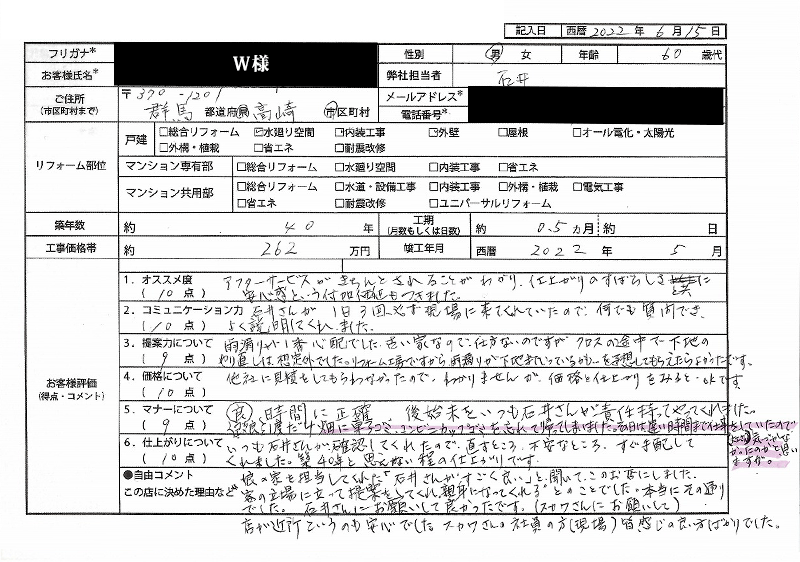 記入日 西暦 2022 年 6 月 15 日
フリガナ* W様 性別 男 女 年齢 60 歳代
お客様氏名* 弊社担当者 石井
ご住所 (市区町村まで) 〒370-1201 メールアドレス*
群馬 都道府県 高崎 市区町村 電話番号*
リフォーム部位
戸建 □総合リフォーム ☑水廻り空間 ☑内装工事 ☑外壁 □屋根 □オール電化・太陽光
□外構・植栽 □省エネ □耐震改修
マンション専有部 □総合リフォーム □水廻り空間 □内装工事 □省エネ
マンション共用部 □総合リフォーム □水道・設備工事 □内装工事 □外構・植栽 □電気工事
□省エネ □耐震改修 □ユニバーサルリフォーム
築年数 約 40 年 工期 (月数もしくは日数) 約 0.5 ヵ月 約 日
工事価格帯 約 262 万円 竣工年月 西暦 2022 年 5 月
お客様評価 (得点・コメント)
1．オススメ度 (10点) アフターサービスがきちんとされることがわかり、仕上がりのすばらしさに
安心感という付加価値もつきました。
2．コミュニケーション力 (10点) 石井さんが1日3回必ず現場に来てくれていたので、何でも質問でき、
よく説明してくれました。
3．提案力について (9点) 雨漏りが1番心配でした。古い家なので、仕方ないのですがクロスの途中で下地の
やり直しは想定外でした。リフォーム工房ですから雨漏りが下地まで
4．価格について (10点) 他社に見積をしてもらわなかったので、わかりませんが、価格と仕上がりをみるとokです。
5．マナーについて (9点) 良、時間に正確 後始末をいつも石井さんが責任持ってやってくれました。
1度だけ畑に コンビニ 忘れて帰ってしまいました。当日は遅い時間まで仕事をしていたので
なかったのかと思い
ますが。
6．仕上がりについて (10点) いつも石井さんが確認してくれたので、直すところ、不安なところ、すぐ手配して
くれました。築40年と思えない程の仕上がりです。
●自由コメント この店に決めた理由など* 娘の家を担当してくれた"石井さんがすごく良い"と聞いて、このお店にしました。
客の立場に立って提案をしてくれ、親身になってくれるとのことでした。本当にその通り
でした。石井さんにお願いして良かったです。(スカワさんにお願いして)
店が近所というのも安心でした スカワさんの社員の方(現場)皆感じの良い方ばかりでした。